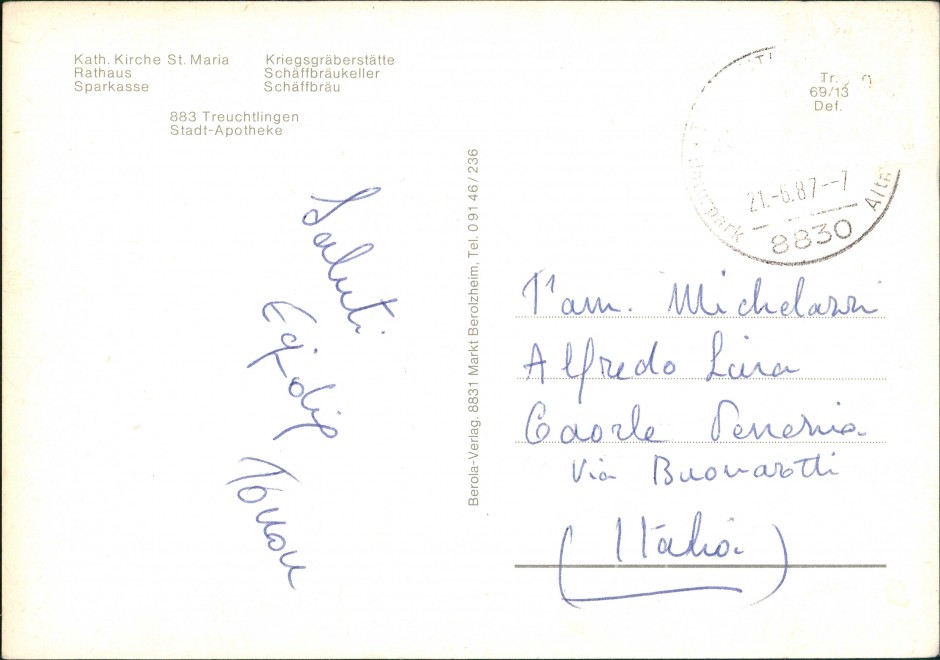 Kath. Kirche St. Maria
Rathaus
Sparkasse
Kriegsgräberstätte
Schäffbräukeller
Schäffbräu
883 Treuchtlingen
Stadt-Apotheke
Tr.
69/13
Def.
21.-6.87--7
8830
Saluti
Egidio
Berola-Verlag. 8831 Markt Berolzheim, Tel. 0 91 46 / 236
Michelazzi
Alfredo
Caorle Venezia
Via Buonarotti
(Italia)